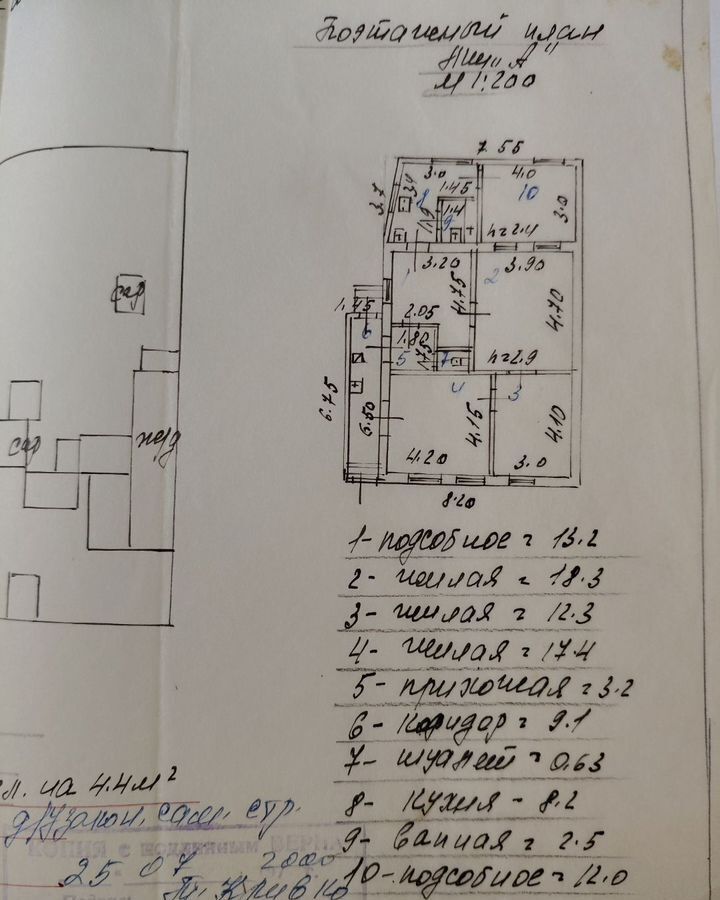 Поэтажный план
Лит „А"
М 1:200
7.55
3.0
4.0
3.7
3.4
1.45
8
10
1.4
9
1.75
3.0
h=2.4
1
3.20
2
3.90
4.75
4.70
1.45
2.05
6
1.80
5
1.75
7
h=2.9
4
3
6.75
6.50
4.15
4.10
4.20
3.0
8.20
сар
сар
1- подсобное = 13.2
2- жилая = 18.3
3- жилая = 12.3
4- жилая = 17.4
5- прихожая = 3.2
6- коридор = 9.1
7- туалет = 0.63
8- кухня - 8.2
9- ванная = 2.5
10- подсобное = 12.0
на 4.4 м²
узакон. сам. стр.
КОПИЯ с подлинным ВЕРНА
25 07 2000